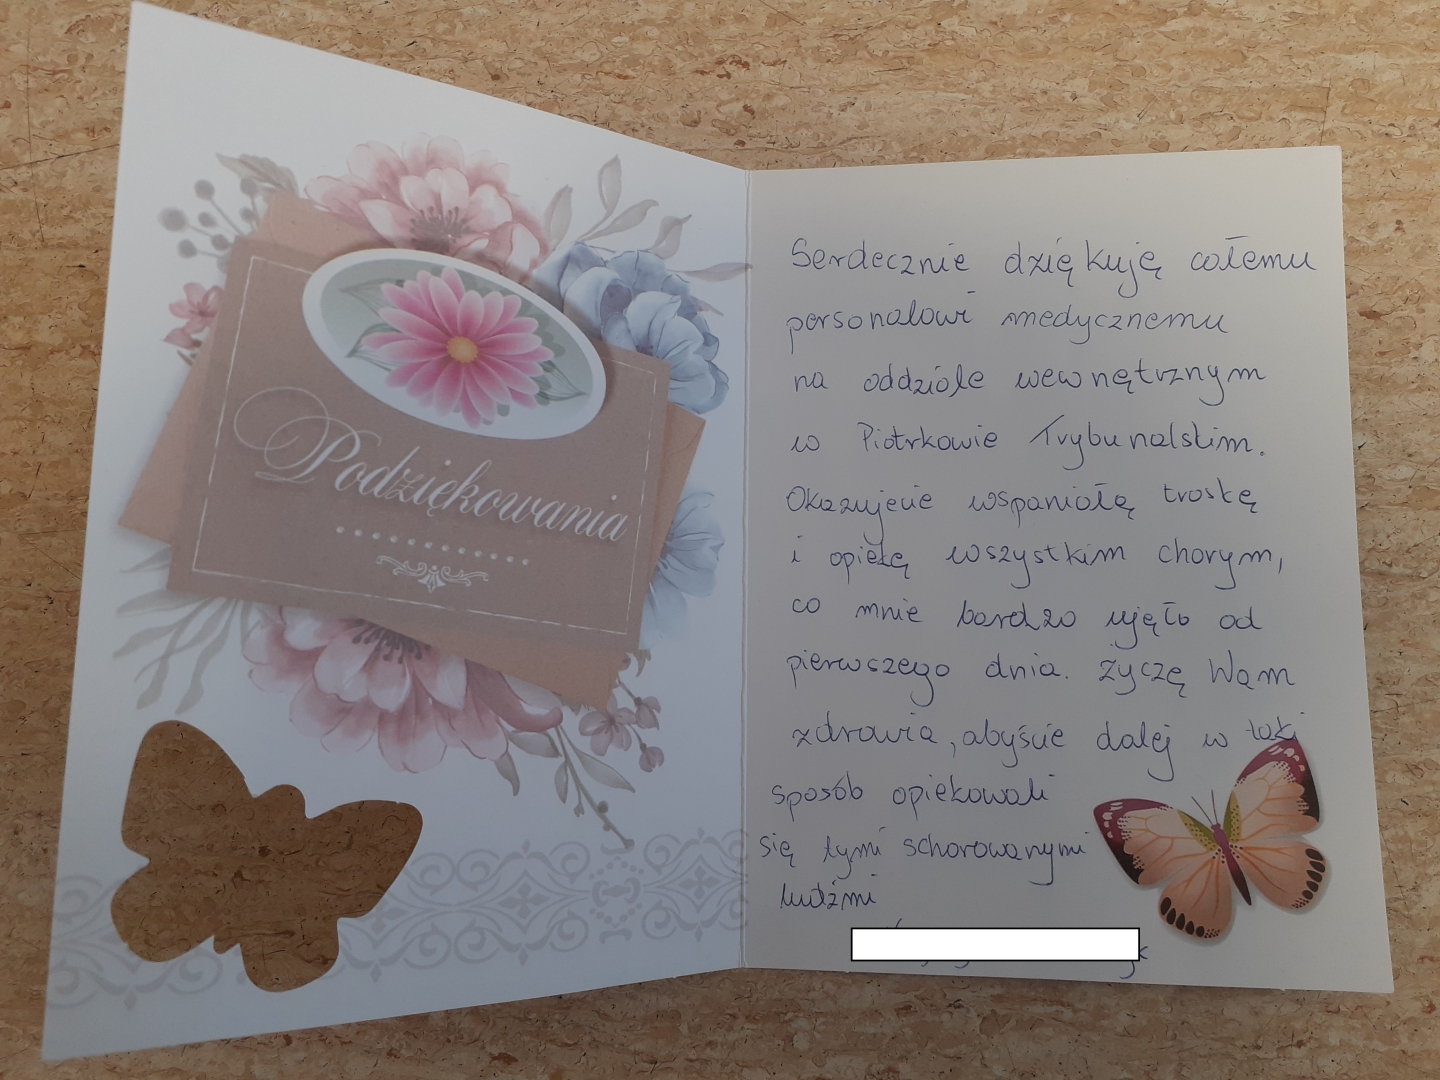 Podziękowania
Serdecznie dziękuję całemu
personalowi medycznemu
na oddziale wewnętrznym
w Piotrkowie Trybunalskim.
Okazujecie wspaniałą troskę
i opiekę wszystkim chorym,
co mnie bardzo ujęło od
pierwszego dnia. Życzę Wam
zdrowia, abyście dalej w taki
sposób opiekowali
się tymi schorowanymi
ludźmi